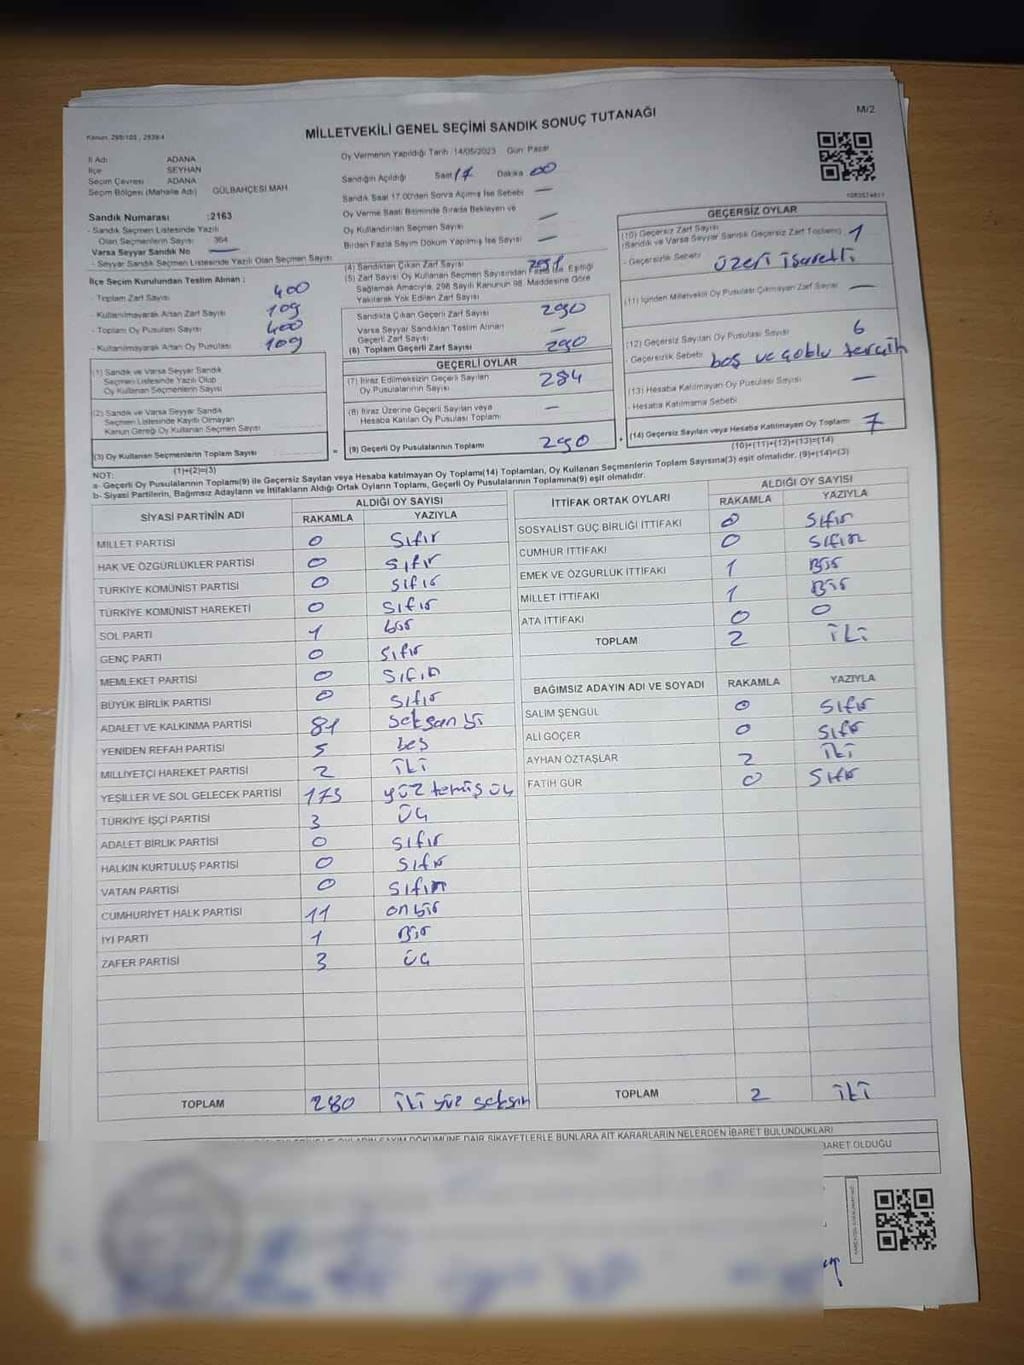 Kanun: 298/105 , 2839/4
M/2
MİLLETVEKİLİ GENEL SEÇİMİ SANDIK SONUÇ TUTANAĞI
İl Adı ADANA
İlçe SEYHAN
Seçim Çevresi ADANA
Seçim Bölgesi (Mahalle Adı) GÜLBAHÇESİ MAH.
Sandık Numarası :2163
- Sandık Seçmen Listesinde Yazılı
Olan Seçmenlerin Sayısı 364
Varsa Seyyar Sandık No —
- Seyyar Sandık Seçmen Listesinde Yazılı Olan Seçmen Sayısı
İlçe Seçim Kurulundan Teslim Alınan ;
- Toplam Zarf Sayısı 400
- Kullanılmayarak Artan Zarf Sayısı 109
- Toplam Oy Pusulası Sayısı 400
- Kullanılmayarak Artan Oy Pusulası 109
(1) Sandık ve Varsa Seyyar Sandık
Seçmen Listesinde Yazılı Olup
Oy Kullanan Seçmenlerin Sayısı
(2) Sandık ve Varsa Seyyar Sandık
Seçmen Listesinde Kayıtlı Olmayan
Kanun Gereği Oy Kullanan Seçmen Sayısı
(3) Oy Kullanan Seçmenlerin Toplam Sayısı
(1)+(2)=(3)
Oy Vermenin Yapıldığı Tarih :14/05/2023 Gün: Pazar
Sandığın Açıldığı Saat 17 Dakika 00
Sandık Saat 17.00'den Sonra Açılmış İse Sebebi —
Oy Verme Saati Bitiminde Sırada Bekleyen ve
Oy Kullandırılan Seçmen Sayısı —
Birden Fazla Sayım Döküm Yapılmış İse Sayısı —
(4) Sandıktan Çıkan Zarf Sayısı 291
(5) Zarf Sayısı Oy Kullanan Seçmen Sayısından Fazla ise, Eşitliği
Sağlamak Amacıyla, 298 Sayılı Kanunun 98. Maddesine Göre
Yakılarak Yok Edilen Zarf Sayısı
Sandıkta Çıkan Geçerli Zarf Sayısı 290
Varsa Seyyar Sandıktan Teslim Alınan
Geçerli Zarf Sayısı —
(6) Toplam Geçerli Zarf Sayısı 290
GEÇERLİ OYLAR
(7) İtiraz Edilmeksizin Geçerli Sayılan
Oy Pusulalarının Sayısı 284
(8) İtiraz Üzerine Geçerli Sayılan veya
Hesaba Katılan Oy Pusulası Toplamı —
= (9) Geçerli Oy Pusulalarının Toplamı 290 +
GEÇERSİZ OYLAR
(10) Geçersiz Zarf Sayısı
(Sandık ve Varsa Seyyar Sandık Geçersiz Zarf Toplamı) 1
- Geçersizlik Sebebi üzeri işaretli
(11) İçinden Milletvekili Oy Pusulası Çıkmayan Zarf Sayısı —
(12) Geçersiz Sayılan Oy Pusulası Sayısı 6
- Geçersizlik Sebebi boş ve çoklu tercih
(13) Hesaba Katılmayan Oy Pusulası Sayısı —
- Hesaba Katılmama Sebebi
(14) Geçersiz Sayılan veya Hesaba Katılmayan Oy Toplamı 7
(10)+(11)+(12)+(13)=(14)
NOT:
a- Geçerli Oy Pusulalarının Toplamı(9) ile Geçersiz Sayılan veya Hesaba katılmayan Oy Toplamı(14) Toplamları, Oy Kullanan Seçmenlerin Toplam Sayısına(3) eşit olmalıdır. (9)+(14)=(3)
b- Siyasi Partilerin, Bağımsız Adayların ve İttifakların Aldığı Ortak Oyların Toplamı, Geçerli Oy Pusulalarının Toplamına(9) eşit olmalıdır.
SİYASİ PARTİNİN ADI ALDIĞI OY SAYISI
RAKAMLA YAZIYLA
MİLLET PARTİSİ 0 Sıfır
HAK VE ÖZGÜRLÜKLER PARTİSİ 0 sıfır
TÜRKİYE KOMÜNİST PARTİSİ 0 sıfır
TÜRKİYE KOMÜNİST HAREKETİ 0 sıfır
SOL PARTİ 1 bir
GENÇ PARTİ 0 sıfır
MEMLEKET PARTİSİ 0 sıfır
BÜYÜK BİRLİK PARTİSİ 0 sıfır
ADALET VE KALKINMA PARTİSİ 81 seksan bi
YENİDEN REFAH PARTİSİ 5 beş
MİLLİYETÇİ HAREKET PARTİSİ 2 iki
YEŞİLLER VE SOL GELECEK PARTİSİ 173 yüz temiş üç
TÜRKİYE İŞÇİ PARTİSİ 3 üç
ADALET BİRLİK PARTİSİ 0 sıfır
HALKIN KURTULUŞ PARTİSİ 0 sıfır
VATAN PARTİSİ 0 sıfır
CUMHURİYET HALK PARTİSİ 11 on bir
İYİ PARTİ 1 Bir
ZAFER PARTİSİ 3 üç
TOPLAM 280 iki yüz seksın
İTTİFAK ORTAK OYLARI ALDIĞI OY SAYISI
RAKAMLA YAZIYLA
SOSYALİST GÜÇ BİRLİĞİ İTTİFAKI 0 sıfır
CUMHUR İTTİFAKI 0 sıfır
EMEK VE ÖZGÜRLÜK İTTİFAKI 1 Bir
MİLLET İTTİFAKI 1 Bir
ATA İTTİFAKI 0 0
TOPLAM 2 iki
BAĞIMSIZ ADAYIN ADI VE SOYADI RAKAMLA YAZIYLA
SALİM ŞENGÜL 0 sıfır
ALİ GÖÇER 0 sıfır
AYHAN ÖZTAŞLAR 2 iki
FATİH GÜR 0 sıfır
TOPLAM 2 iki
SAYIM DÖKÜMÜNE DAİR ŞİKAYETLERLE BUNLARA AİT KARARLARIN NELERDEN İBARET BULUNDUKLARI
BARET OLDUĞU